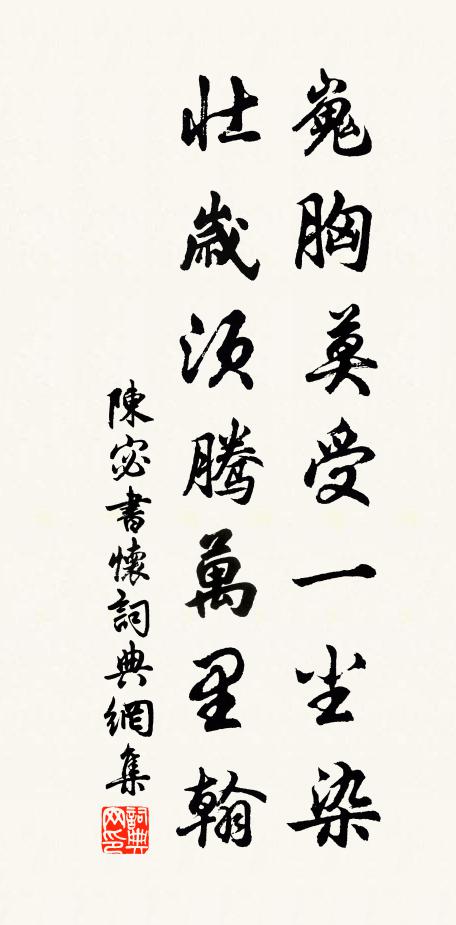 嵬胸莫受一尘染
壮歲須騰萬里翰
陳宓書懷詞典網集
詞典
网印